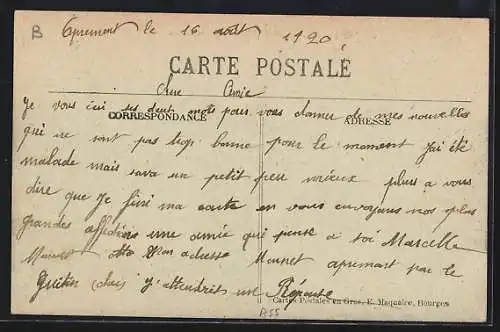 B
Apremont le 16 août 1920
CARTE POSTALE
Chere Amie
CORRESPONDANCE
ADRESSE
Je vous écri ses deux mots pour vous donner de mes nouvelles
qui ne sont pas trop bonne pour le moment J'ai été
malade mais sava un petit peu mieux plus a vous
dire que Je fini ma carte en vous envoyans nos plus
grandes affections une amie qui pense a toi Marcelle
Monnet Mon adresse Monnet apremont par le
Guétin (cher) J'attendrais une Réponse
Cartes Postales en Gros, E. Maquaire, Bourges
A55